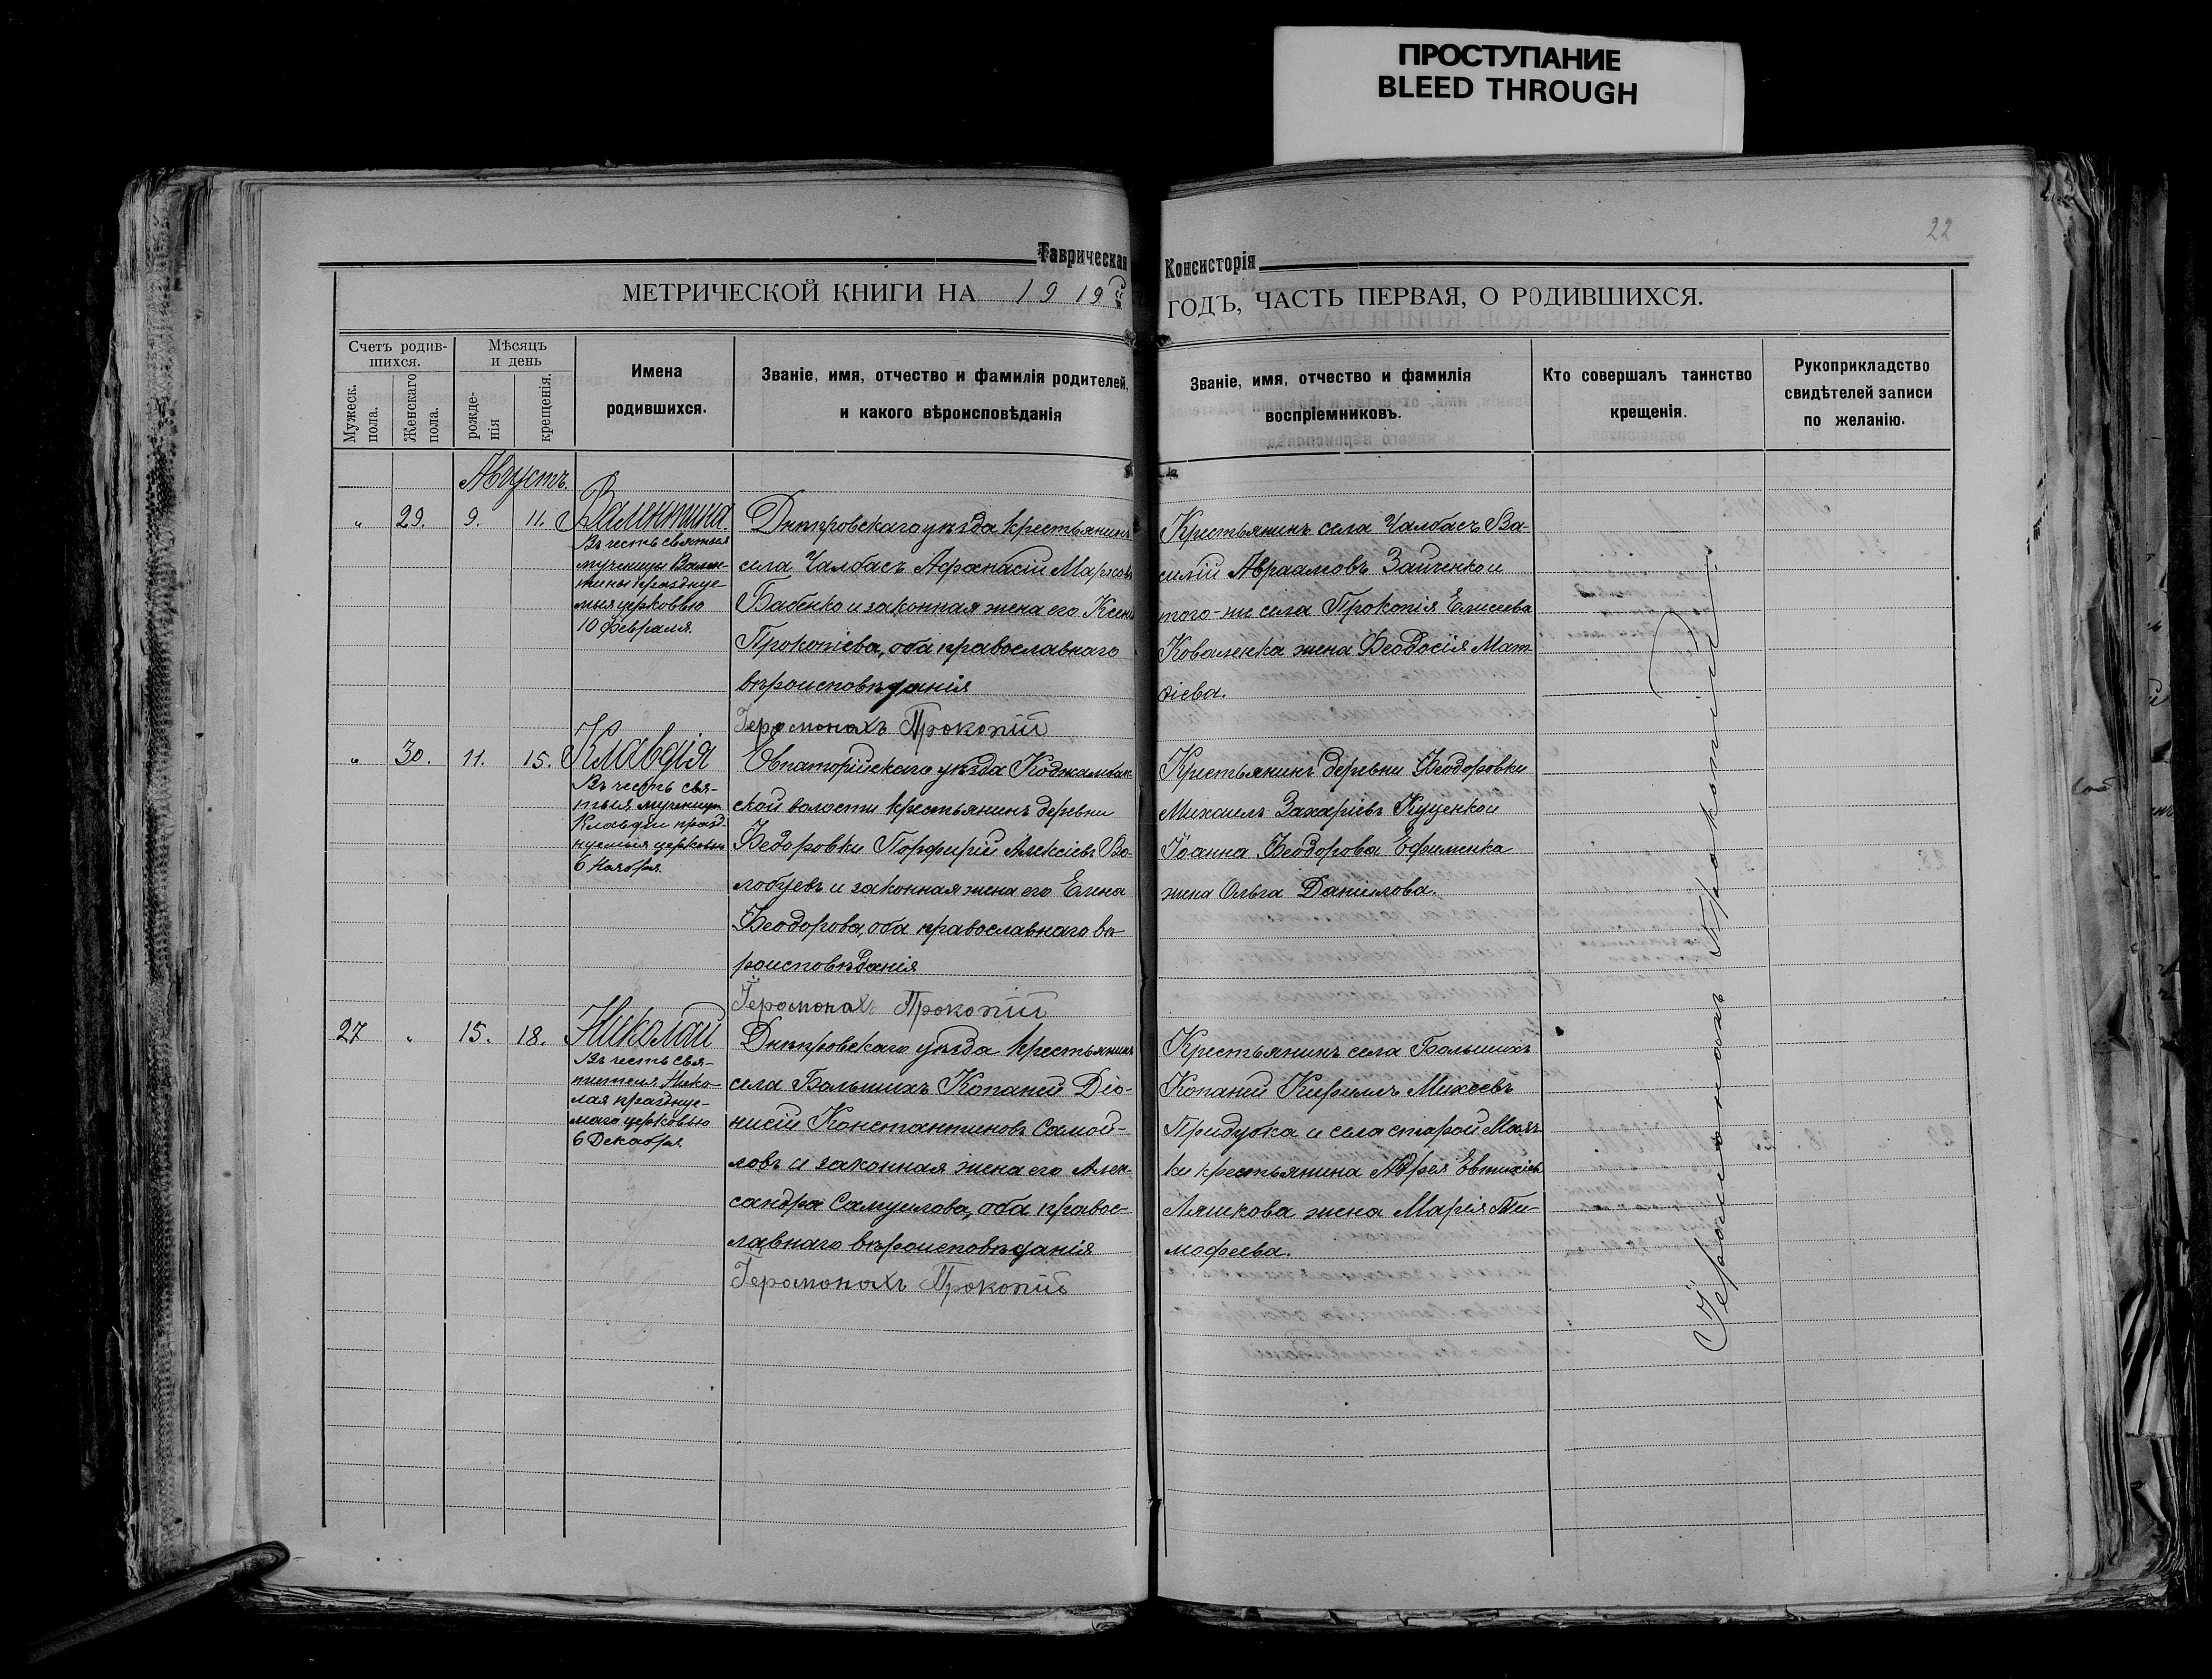 ПРОСТУПАНИЕ
BLEED THROUGH
22
Таврическая Консисторія
МЕТРИЧЕСКОЙ КНИГИ НА 1919й ГОДЪ, ЧАСТЬ ПЕРВАЯ, О РОДИВШИХСЯ.
Счетъ родив-
шихся.
Мужеск.
пола.
Женскаго
пола.
Мѣсяцъ
и день
рожде-
нія
крещенія.
Имена
родившихся.
Званіе, имя, отчество и фамилія родителей,
и какого вѣроисповѣданія
Званіе, имя, отчество и фамилія
воспріемниковъ.
Кто совершалъ таинство
крещенія.
Рукоприкладство
свидѣтелей записи
по желанію.
Августъ.
„ 29. 9. 11.
Валентина.
Въ честь святыя
мученицы Вален-
тины празднуе-
мыя церковью
10 февраля.
Днѣпровскаго уѣзда крестьянинъ
села Чалбасъ Афанасій Марковъ
Бабенко и законная жена его Ксенія
Прокопіева, оба православнаго
вѣроисповѣданія
Іеромонахъ Прокопій
Крестьянинъ села Чалбасъ Ва-
силій Авраамовъ Зайченко и
того-же села Прокопія Елисеева
Коваленка жена Феодосія Мат
ѳіева.
„ 30. 11. 15.
Клавдія
Въ честь свя-
тыя мученицы
Клавдіи празд-
нуемыя церковью
6 Ноября.
Евпаторійскаго уѣзда Коджамбак
ской волости крестьянинъ деревни
Федоровки Порфирій Алексіевъ Во-
лобуевъ и законная жена его Елена
Феодорова, оба православнаго вѣ-
роисповѣданія
Іеромонахъ Прокопій
Крестьянинъ деревни Феодоровки
Михаилъ Захаріевъ Куценко и
Іоанна Феодорова Ефименка
жена Ольга Даніилова.
27 „ 15. 18.
Николай
Въ честь свя-
тителя Нико-
лая празднуе-
маго церковью
6 Декабря.
Днѣпровскаго уѣзда крестьянинъ
села Большихъ Копаней Діо-
нисій Константиновъ Самой-
ловъ и законная жена его Алек-
сандра Самуилова, оба правос-
лавнаго вѣроисповѣданія
Іеромонахъ Прокопій
Крестьянинъ села Большихъ
Копаней Кириллъ Михеевъ
Придубка и села старой Маяч
ки крестьянина Евтихіев
Ляшкова жена Марія Ти-
мофеева.
Іеромонахъ Прокопій.